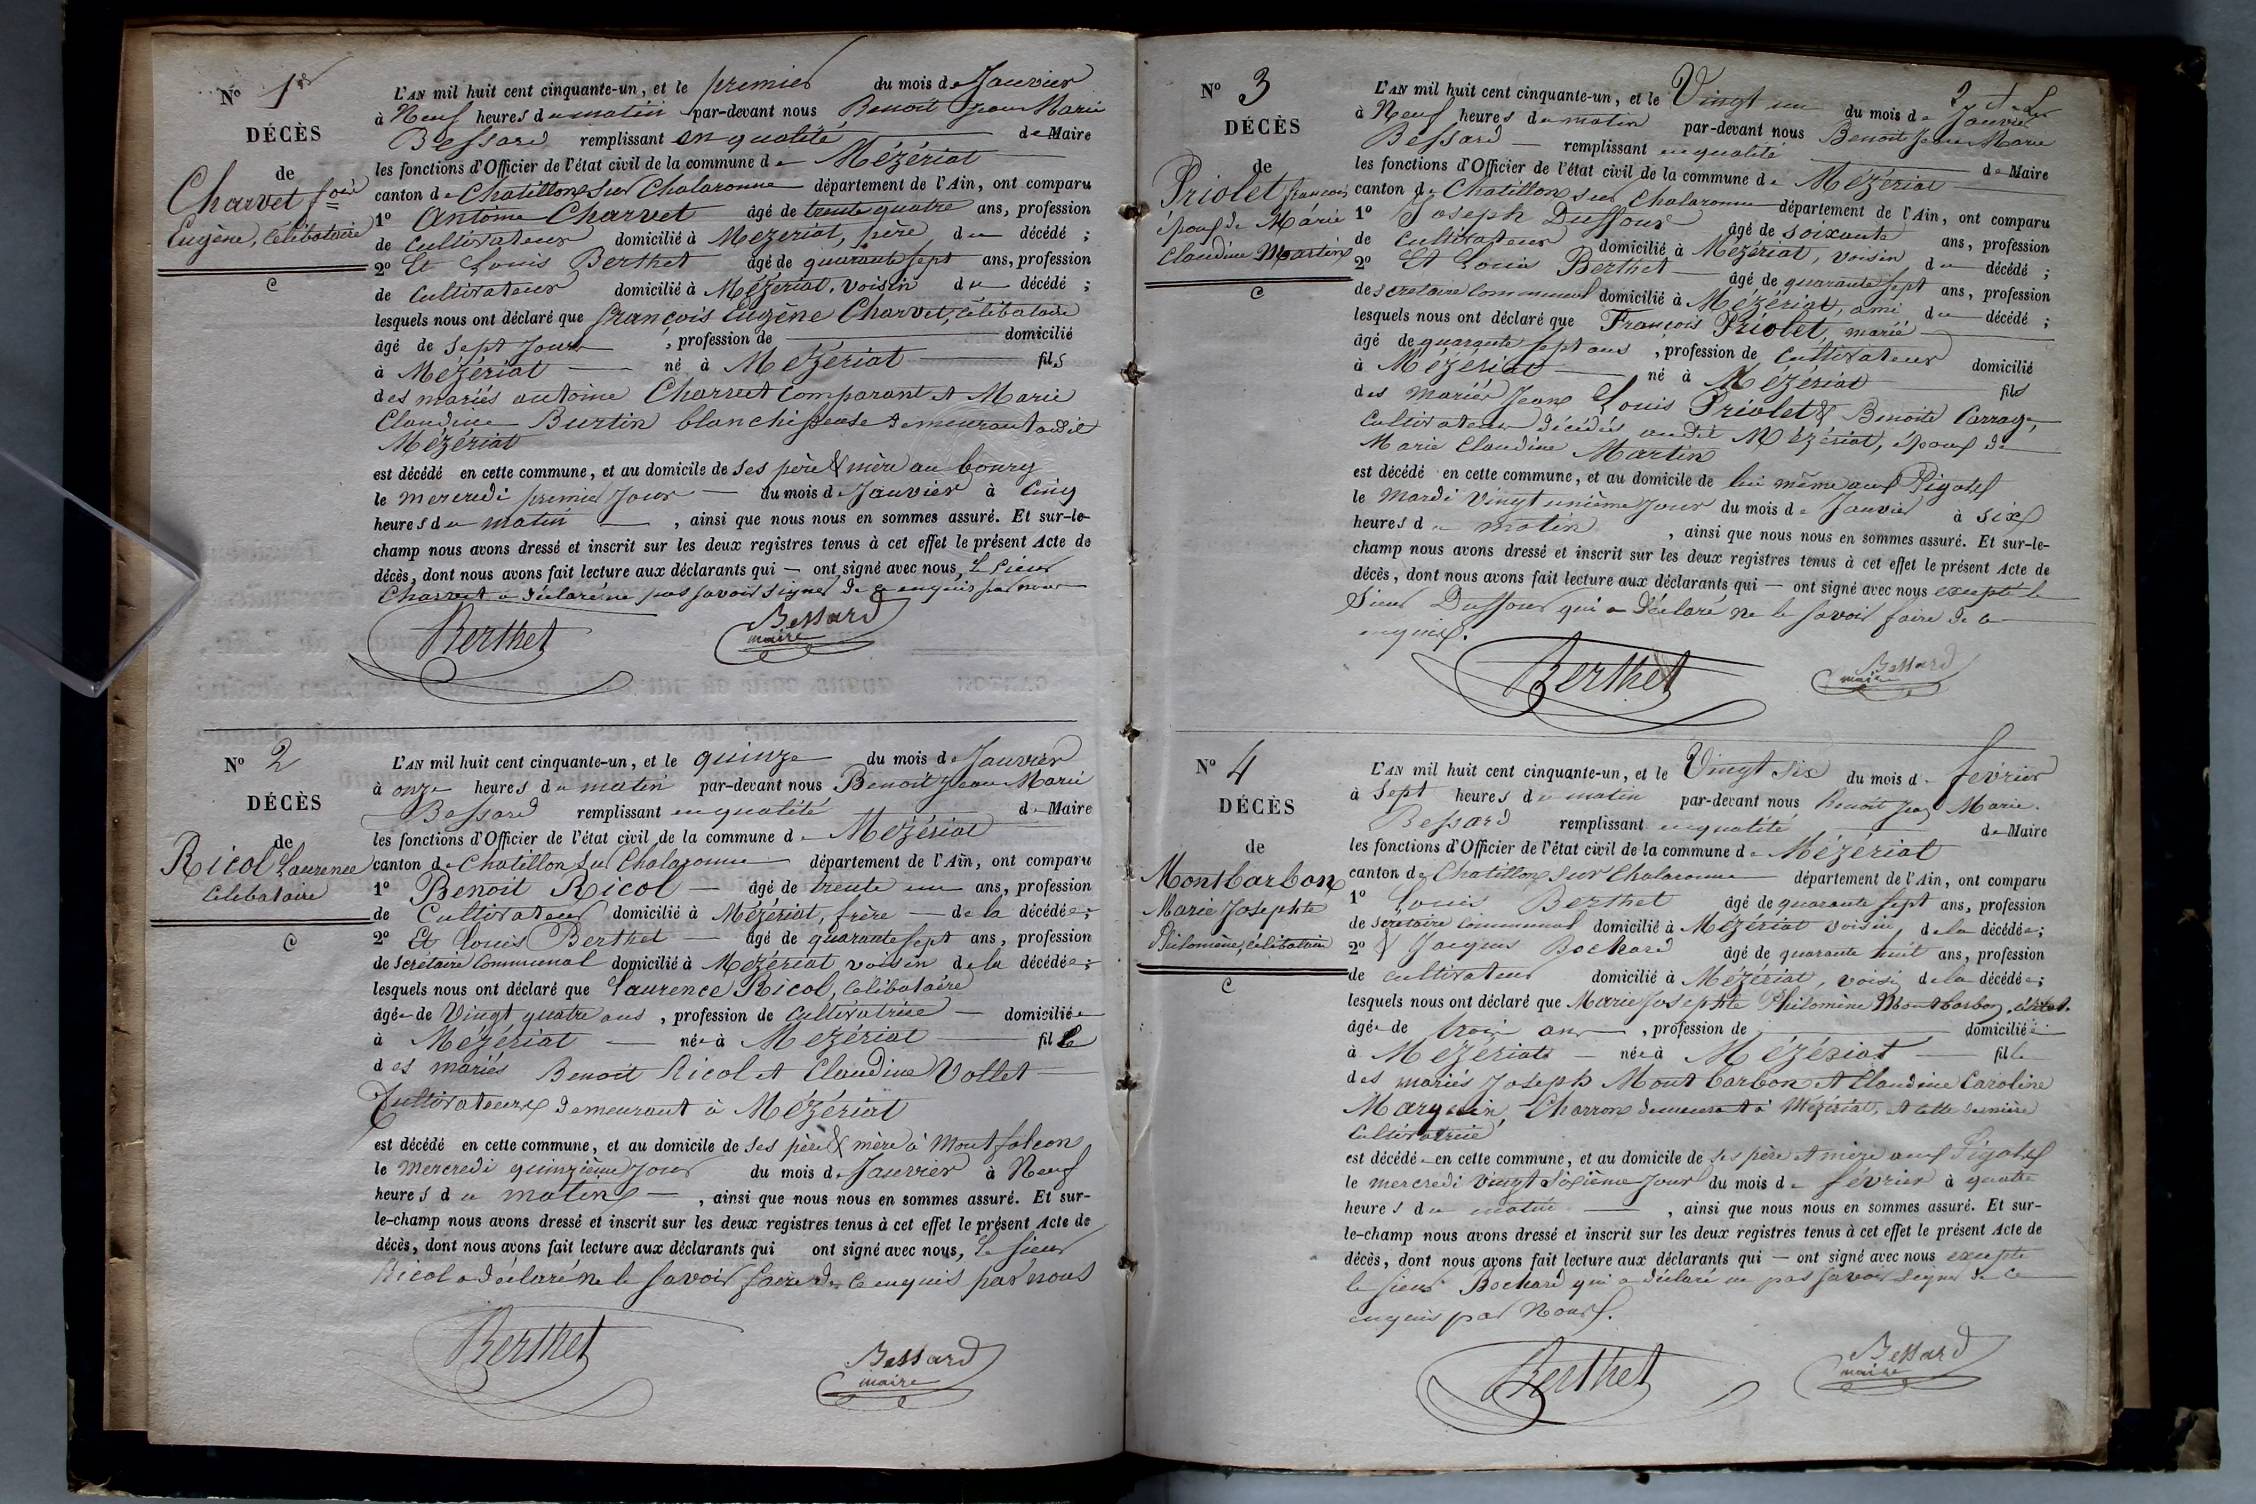 N° 1er
DÉCÈS
de
Charvet fois
Eugène, Célibataire
C
L'AN mil huit cent cinquante-un, et le premier du mois de Janvier
à Neuf heures du matin par-devant nous Benoit Jean Marie
Bessard remplissant en qualité de Maire
les fonctions d'Officier de l'état civil de la commune de Mézériat
canton de Chatillon sur Chalaronne département de l'Ain, ont comparu
1° Antoine Charvet âgé de trente quatre ans, profession
de Cultivateur domicilié à Mézériat, père du décédé ;
2° Et Louis Berthet âgé de quarante sept ans, profession
de Cultivateur domicilié à Mézériat, voisin du décédé ;
lesquels nous ont déclaré que françois Eugène Charvet, Célibataire
âgé de sept Jours , profession de domicilié
à Mézériat né à Mézériat fils
des mariés antoine Charvet comparant et Marie
Claudine Burtin blanchisseuse demeurant audit
Mézériat
est décédé en cette commune, et au domicile de ses père & mère au bourg
le mercredi premier Jour du mois de Janvier à Cinq
heures du matin , ainsi que nous nous en sommes assuré. Et sur-le-
champ nous avons dressé et inscrit sur les deux registres tenus à cet effet le présent Acte de
décès, dont nous avons fait lecture aux déclarants qui — ont signé avec nous, le sieur
Charvet a déclaré ne pas savoir signer de ce enquis par nous
Berthet
Bessard
maire
N° 2
DÉCÈS
de
Ricol Laurence
Célibataire
C
L'AN mil huit cent cinquante-un, et le quinze du mois de Janvier
à onze heures du matin par-devant nous Benoit Jean Marie
Bessard remplissant en qualité de Maire
les fonctions d'Officier de l'état civil de la commune de Mézériat
canton de Chatillon sur Chalaronne département de l'Ain, ont comparu
1° Benoit Ricol — âgé de trente un ans, profession
de Cultivateur domicilié à Mézériat, frère — de la décédée ;
2° Et Louis Berthet — âgé de quarante sept ans, profession
de secrétaire Communal domicilié à Mézériat voisin de la décédée ;
lesquels nous ont déclaré que Laurence Ricol, Célibataire
âgée de Vingt quatre ans , profession de Cultivatrice — domiciliée
à Mézériat — née à Mézériat fille
des mariés Benoit Ricol et Claudine Vollet
Cultivateurs demeurant à Mézériat
est décédé en cette commune, et au domicile de ses père & mère à Montfalcon
le Mercredi quinzième Jour du mois de Janvier à Neuf
heures du matin — , ainsi que nous nous en sommes assuré. Et sur-
le-champ nous avons dressé et inscrit sur les deux registres tenus à cet effet le présent Acte de
décès, dont nous avons fait lecture aux déclarants qui ont signé avec nous, le sieur
Ricol a déclaré ne le savoir faire de ce enquis par nous
Berthet
Bessard
maire
N° 3
DÉCÈS
de
Priolet françois
époux de Marie
Claudine Martin
C
L'AN mil huit cent cinquante-un, et le Vingt un du mois de Janvier
à Neuf heures du matin par-devant nous Benoit Jean Marie
Bessard — remplissant en qualité de Maire
les fonctions d'Officier de l'état civil de la commune de Mézériat
canton de Chatillon sur Chalaronne département de l'Ain, ont comparu
1° Joseph Duffour âgé de soixante ans, profession
de Cultivateur domicilié à Mézériat, voisin du décédé ;
2° Et Louis Berthet âgé de quarante sept ans, profession
de secretaire Communal domicilié à Mézériat, ami du décédé ;
lesquels nous ont déclaré que François Priolet, marié
âgé de quarante sept ans , profession de Cultivateur domicilié
à Mézériat né à Mézériat fils
des mariés Jean Louis Priolet & Benoite Carrage,
Cultivateurs décédés audit Mézériat, époux de
Marie Claudine Martin
est décédé en cette commune, et au domicile de lui même aux Pigolets
le Mardi Vingt unième Jour du mois de Janvier à six
heures du matin , ainsi que nous nous en sommes assuré. Et sur-le-
champ nous avons dressé et inscrit sur les deux registres tenus à cet effet le présent Acte de
décès, dont nous avons fait lecture aux déclarants qui — ont signé avec nous excepté le
Sieur Duffour qui a déclaré ne le savoir faire de ce
enquis.
Berthet
Bessard
maire
N° 4
DÉCÈS
de
Montbarbon
Marie Josephte
Philomène, célibataire
C
L'AN mil huit cent cinquante-un, et le Vingt six du mois de février
à sept heures du matin par-devant nous Benoit Jean Marie
Bessard remplissant en qualité de Maire
les fonctions d'Officier de l'état civil de la commune de Mézériat
canton de Chatillon sur Chalaronne département de l'Ain, ont comparu
1° Louis Berthet âgé de quarante sept ans, profession
de secrétaire Communal domicilié à Mézériat voisin, de la décédée ;
2° & Jacques Bochard âgé de quarante huit ans, profession
de cultivateur domicilié à Mézériat, voisin de la décédée ;
lesquels nous ont déclaré que Marie Josephte Philomène Montbarbon, célibat.
âgée de trois ans , profession de domiciliée
à Mézériat — née à Mézériat fille
des mariés Joseph Montbarbon et Claudine Caroline
Marguin, Charron demeurant à Mézériat, et cette dernière
Cultivatrice
est décédée en cette commune, et au domicile de ses père et mère aux Pigolets
le mercredi Vingt Sixième Jour du mois de février à quatre
heures du matin , ainsi que nous nous en sommes assuré. Et sur-
le-champ nous avons dressé et inscrit sur les deux registres tenus à cet effet le présent Acte de
décès, dont nous avons fait lecture aux déclarants qui — ont signé avec nous excepté
le sieur Bochard qui a déclaré ne pas savoir signer de ce
enquis par Nous.
Berthet
Bessard
maire